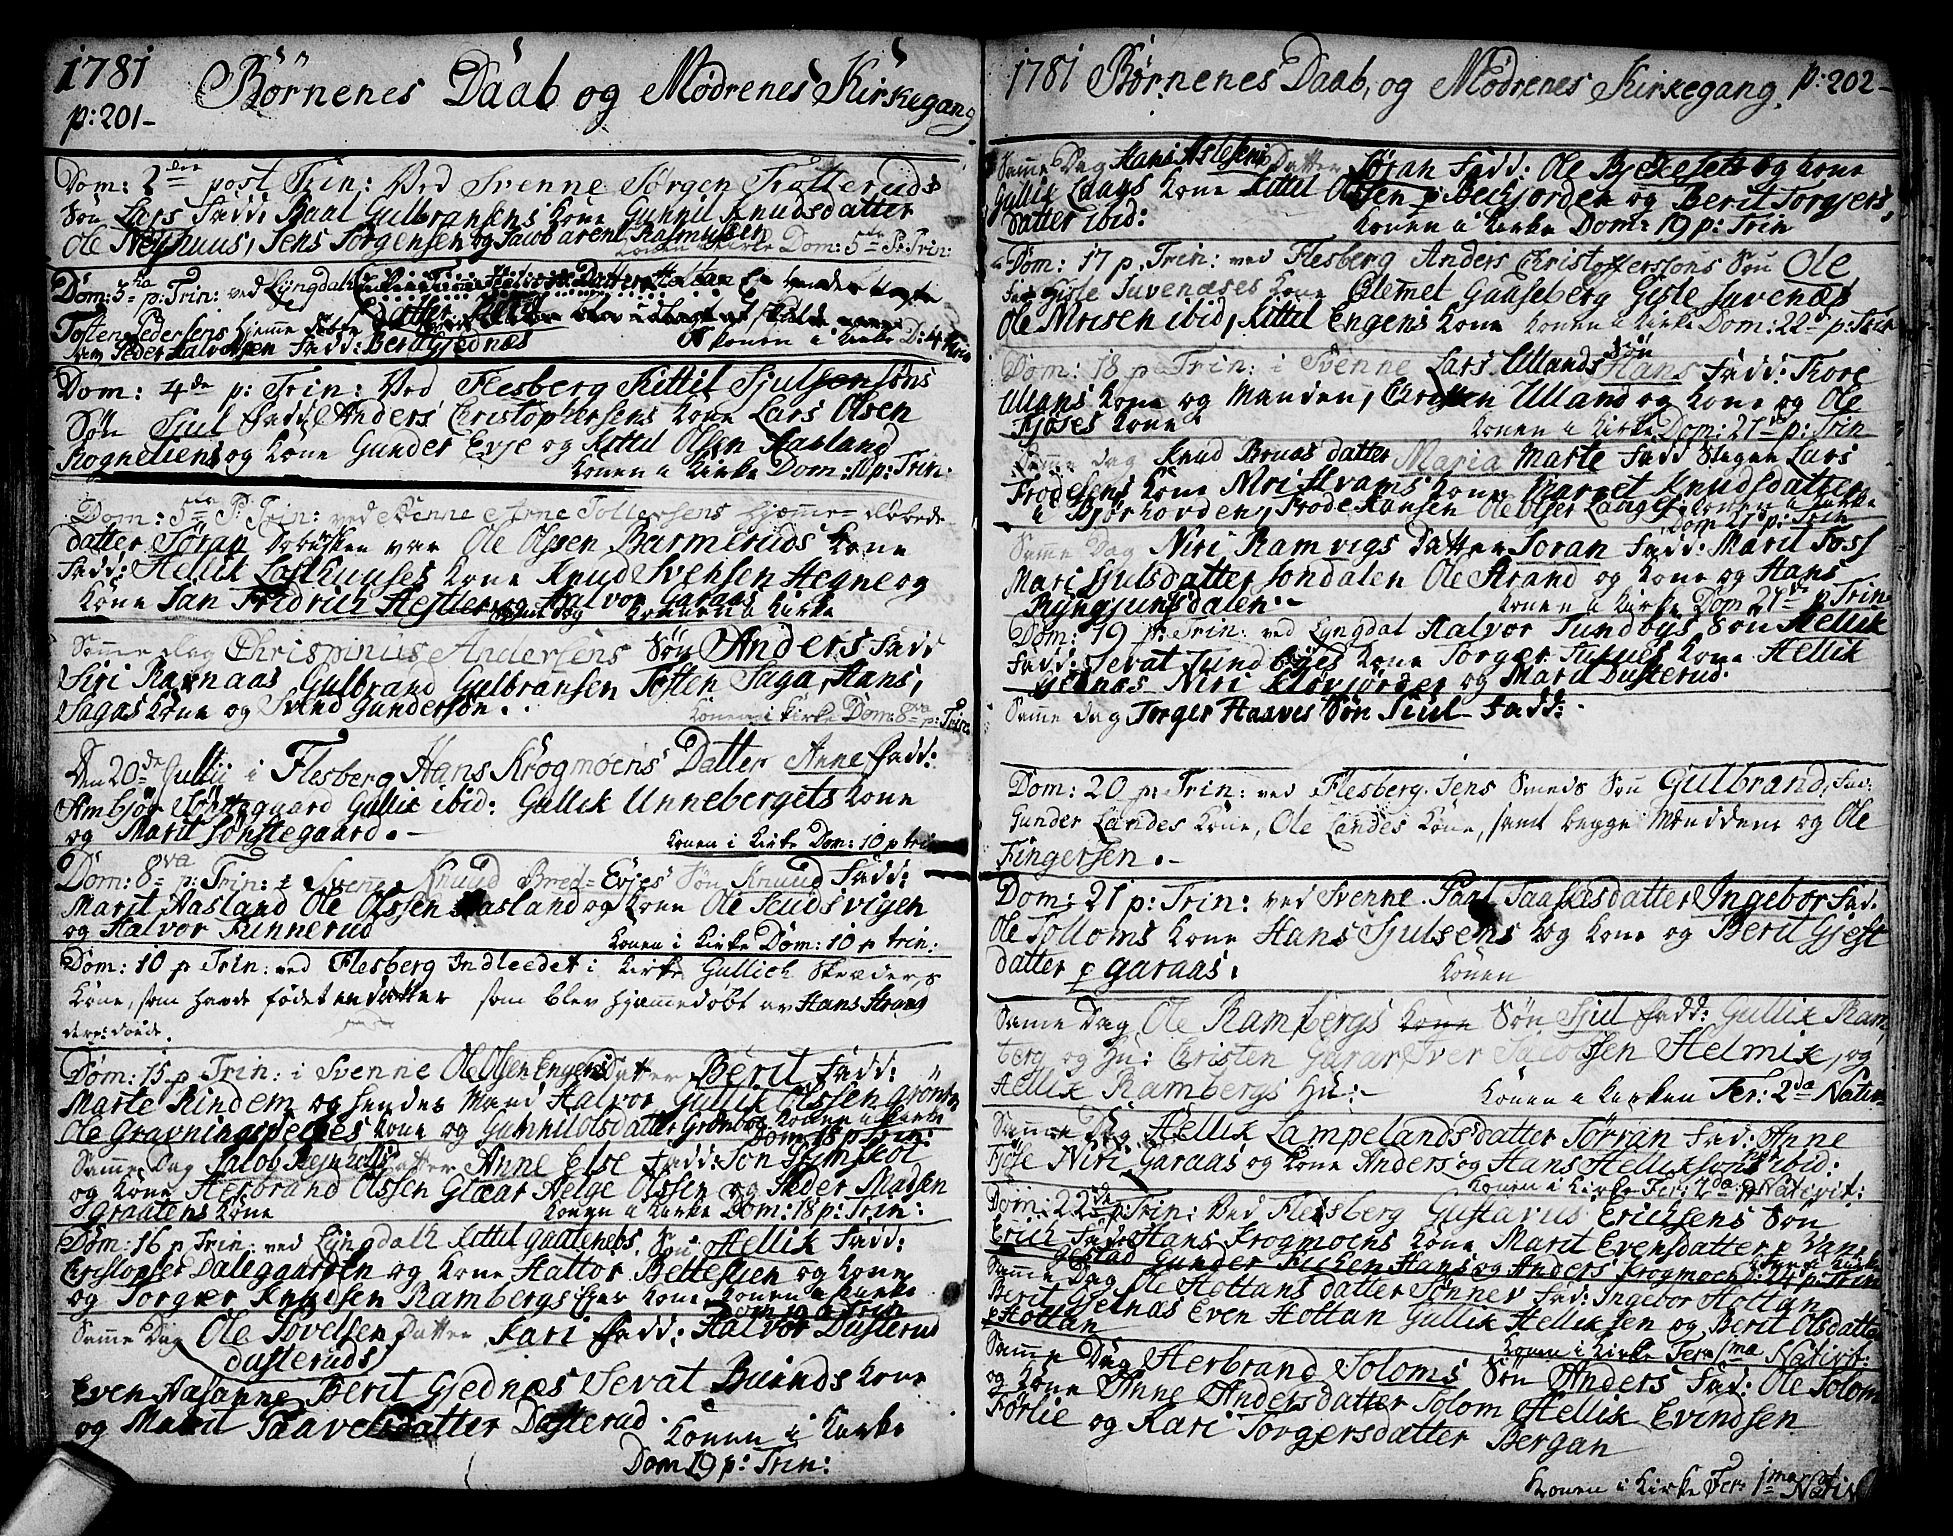 1781 Børnenes Daab og Mødrenes Kirkegang
p: 201-
Dom: 2den post Trin: Ved Svenne Jørgen Tratteruds
Søn Lars Fadd: Paal Gulbransens Kone Gunnil Knudsdatter
Ole Nephuus, Jens Jørgensen og Jacob arent Rasmussen
Konen i Kirke Dom: 5te P: Trin:
Dom: 3tia p: Trin: ved Lyngdahl
Tosten Pedersens hjemme døbte
Søn Peder Halvorsen Fadd: Berit Gjednæs Konen i Kirke D: 4 Trin
Dom: 4de p: Trin: Ved Flesberg Kittil Sjulsensøns
Søn Sjul Fadd: Anders Christophersens Kone Lars Olsen
Rognetiens og Kone Gunder Evje og Kittil Olsen Aasland
Konen i Kirke Dom: 11 p: Trin.
Dom: 5te P: Trin: ved Svenne Arne Tollersens hjemme døbede
datter Jøran Dobesken var Ole Olsen Barmeruds Kone
Fadd: Hellik Lofthuuses Kone Knud Svensen Hegne og
Kone Jan Fridrich Hestler og Halvor Garaas
samme dag Konen i Kirke
Samme dag Chrispinus Andersens Søn Anders Fadd
Siri Ravnaas Gulbrand Gulbransen Tosten Saga, Hans,
Sagas Kone og Svend Gundersøn.
Konen i Kirke Dom: 8va p: Trin.
Den 20de Julij i Flesberg Hans Krogmoens Datter Anne Fadd:
Ambjør Sønstegaard Gullik ibid: Gullik Unnebergets Kone
og Marit Sønstegaard.-
Konen i Kirke Dom: 10 p trin
Dom: 8va p: Trin: i Svenne Knuud Bred-Evjes Søn Knuud Fadd:
Marit Aasland Ole Olssen Aasland og Kone Ole Juudsvigen
og Halvor Funnerud
Konen i Kirke Dom: 10 p trin:
Dom: 10 p Trin: ved Flesberg Indleedet i Kirke Gullich Skræders
Kone, som havde født en datter som blev hjemmedøbt av Hans Strand
Dom: 15 p Trin: i Svenne Ole Olsen Engens Datter Berit Fadd:
Marte Rindem og hendes Mand Halvor Gullik Olssen Grønb
Ole Gravningspeiges Kone og Gunnil Olsdatter Grønbog Konen i Kirke
Dom 18 p Trin:
Samme Dag Jacob Steinholts datter Anne Else Fadd: Jon Giemskot
og Kone Herbrand Olssen Glæar Helge Olssen og Peder Madsen
Graatens Kone Konen i Kirke Dom: 18 p: Trin:
Dom: 16 p Trin: ved Lyngdalh Kittil Gaatenebs Søn Hellik Fadd:
Cristopfer Daleggarden og Kone Haltor Bettestien og Kone
og Torger Knudsen Rambergs Eier Kone Konen i Kirke
Dom 19 p Trin
Samme Dag Ole Sovelsen datter Kari Fadd: Halvor Dusterud
(Dusteruds)
Even Aasanne Berit Gjednæs Sevat Buinds Kone
og Marit Taavelsdatter Dusterud.
Konen i Kirke
Dom 19 p: Trin:
1781 Børnenes Daab, og Mødrenes Kirkegang, p: 202-
Samme Dag Hans Aslesens Datter Jøran Fadd: Ole Bekkeseth og Kone
Gullik Laags Kone Kittil Olsen p Bekjorden og Berit Torgers
datter ibid: Konen i Kirke Dom: 19 p: Trin
Dom: 17 p. Trin: ved Flesberg Anders Christofferssøns Søn Ole
Fad: Gisle Juvenæses Kone Clemet Gaaseberg Gisle Juvenæs
Ole Nirisen ibid, Kittil Engens Kone Konen i Kirke Dom: 22 p: Trin
Dom: 18 p: Trin: i Svenne Lars Ullands Søn Hans Fadd: Tore
Ullans Kone og Manden, Christen Ulland og Kone og Ole
Fjoses Kone. Konen i Kirke Dom: 21 p: Trin
Samme dag Knud Bruas datter Maria Marte Fadd Steget Lars
Frodesens Kone Niri Hvams Kone Marget Knudsdatter
i Bjørhovden, Frode Hansen Ole Olsen Langes Konen i Kirke
Dom 21 p: Trin
Samme Dag Niri Ramvigs datter Joran Fadd: Marit Foss
Mari Sjulsdatter Søndalen Ole Strand og Kone og Hans
Ryngjunsdalen.- Konen i Kirke Dom 21 p Trin
Dom: 19 p: Trin: ved Lyngdal Halvor Tundbys Søn Hellik
Fadd: Sevat Tundbøes Kone Torger Tufues Kone Hellik
Gednæs Niri Kløvjorder og Marit Dusterud.
Samme dag Torger Haaves Søn Sjul Fadd:
Dom: 20 p: Trin: ved Flesberg. Jens Smeds Søn Gulbrand, Fad:
Gunder Landes Kone, Ole Landes Kone, samt begge Mændene og Ole
Fingersen.-
Dom: 21 p: Trin: ved Svenne Paul Taasesdatter Ingebor Fad.
Ole Tolloms Kone Hans Sjulsens og Kone og Berit Gjest
datter p Garaas. Konen
Samme Dag Ole Rambergs Kone Søn Sjul Fadd: Gullik Ram
berg og Hu: Cristen Garaas Iver Jacobssen Helmik, og
Hellik Rambergs Hu:- Konen i Kirken Fer: 2da Nativ
Samme Dag Hellik Lampelandsdatter Jørran Fad: Anne
Fjøse Niri Garaas og Kone Anders og Hans Helliksøns ibid:
Konen i Kirke Fer: 2da Nativit:
Dom: 22de p: Trin: Ved Flesberg Gustavus Ericksens Søn
Erich Fadd: Hans Krogmoens Kone Marit Evensdatter p Van
gestad Gunder Ficken Hans og Anders Krogmoen D: 24 p: Trin
Samme Dag Ole Hottans datter Sønnev Fad: Ingebor Hottan
Berit Gjelnæs Even Hottan Gullik Helliksen og Berit Olsdatter
p Hottan Konen i Kirke Fer: 1ma Nativit:
Samme Dag Herbrand Soloms Søn Anders Fad: Ole Solom
og Kone Anne Andersdatter Solom Hellik Evindsen
Førlie og Kari Torgersdatter Bergan
Konen i Kirke Fer: 1ma Nativ